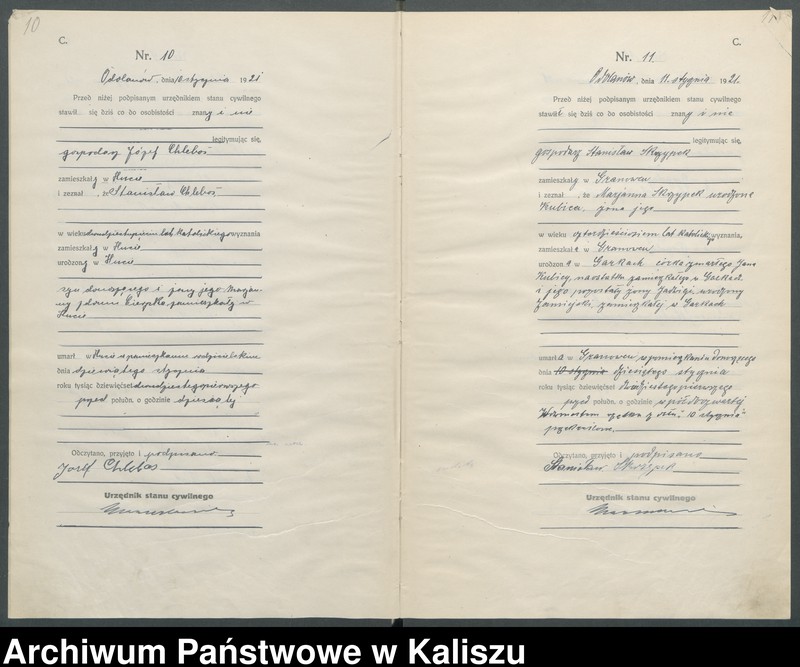 10
C.
Nr. 10
Odolanów, dnia 10 stycznia 1921
Przed niżej podpisanym urzędnikiem stanu cywilnego
stawił się dziś co do osobistości znany i nie
legitymując się,
gospodarz Józef Chleboś
zamieszkały w Hucie
i zeznał, że Stanisław Chleboś
w wieku lat katolickiego wyznania
zamieszkały w Hucie
urodzony w Hucie
syn donoszącego i żony jego
z domu zamieszkały w
Hucie
umarł w Hucie w pomieszkaniu
dnia dziewiątego stycznia
roku tysiąc dziewięćset dwudziestegopierwszego
przed połudn. o godzinie
Odczytano, przyjęto i podpisano
Jozef Chlebos
Urzędnik stanu cywilnego
11
C.
Nr. 11
Odolanów, dnia 11. stycznia 1921.
Przed niżej podpisanym urzędnikiem stanu cywilnego
stawił się dziś co do osobistości znany i nie
legitymując się,
gospodarz Stanisław Skrzypek
zamieszkały w Granowcu
i zeznał, że Marjanna Skrzypek urodzona
Kubica, żona jego
w wieku lat katolick. wyznania,
zamieszkała w Granowcu
urodzona w Garkach córka zmarłego Jana
Kubicy, na ostatku zamieszkałego w Garkach
i jego pozostałej żony Jadwigi, urodzony
zamieszkałej w Garkach
umarła w Granowcu w pomieszkaniu donoszącego
dnia 10 stycznia dziesiątego stycznia
roku tysiąc dziewięćset dwudziestegopierwszego
przed połudn. o godzinie w pół do czwartej
"10 stycznia"
przekreślono.
Odczytano, przyjęto i podpisano
Stanisław Skrzypek
Urzędnik stanu cywilnego
Archiwum Państwowe w Kaliszu